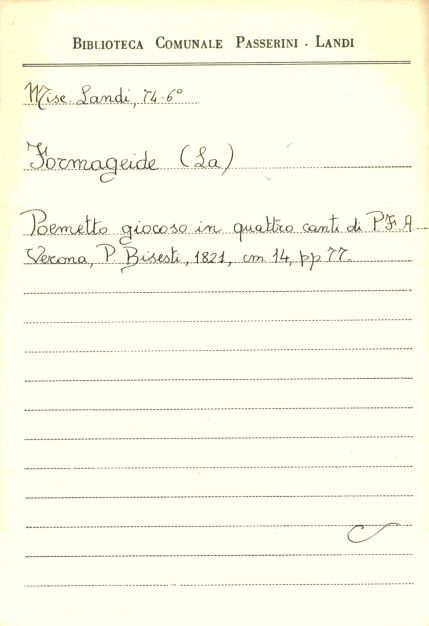 BIBLIOTECA COMUNALE PASSERINI - LANDI
Misc. Landi, 74-6°
Formageide (La)
Poemetto giocoso in quattro canti di P. F. A.
Verona, P. Bisesti, 1821, cm 14, pp 77.